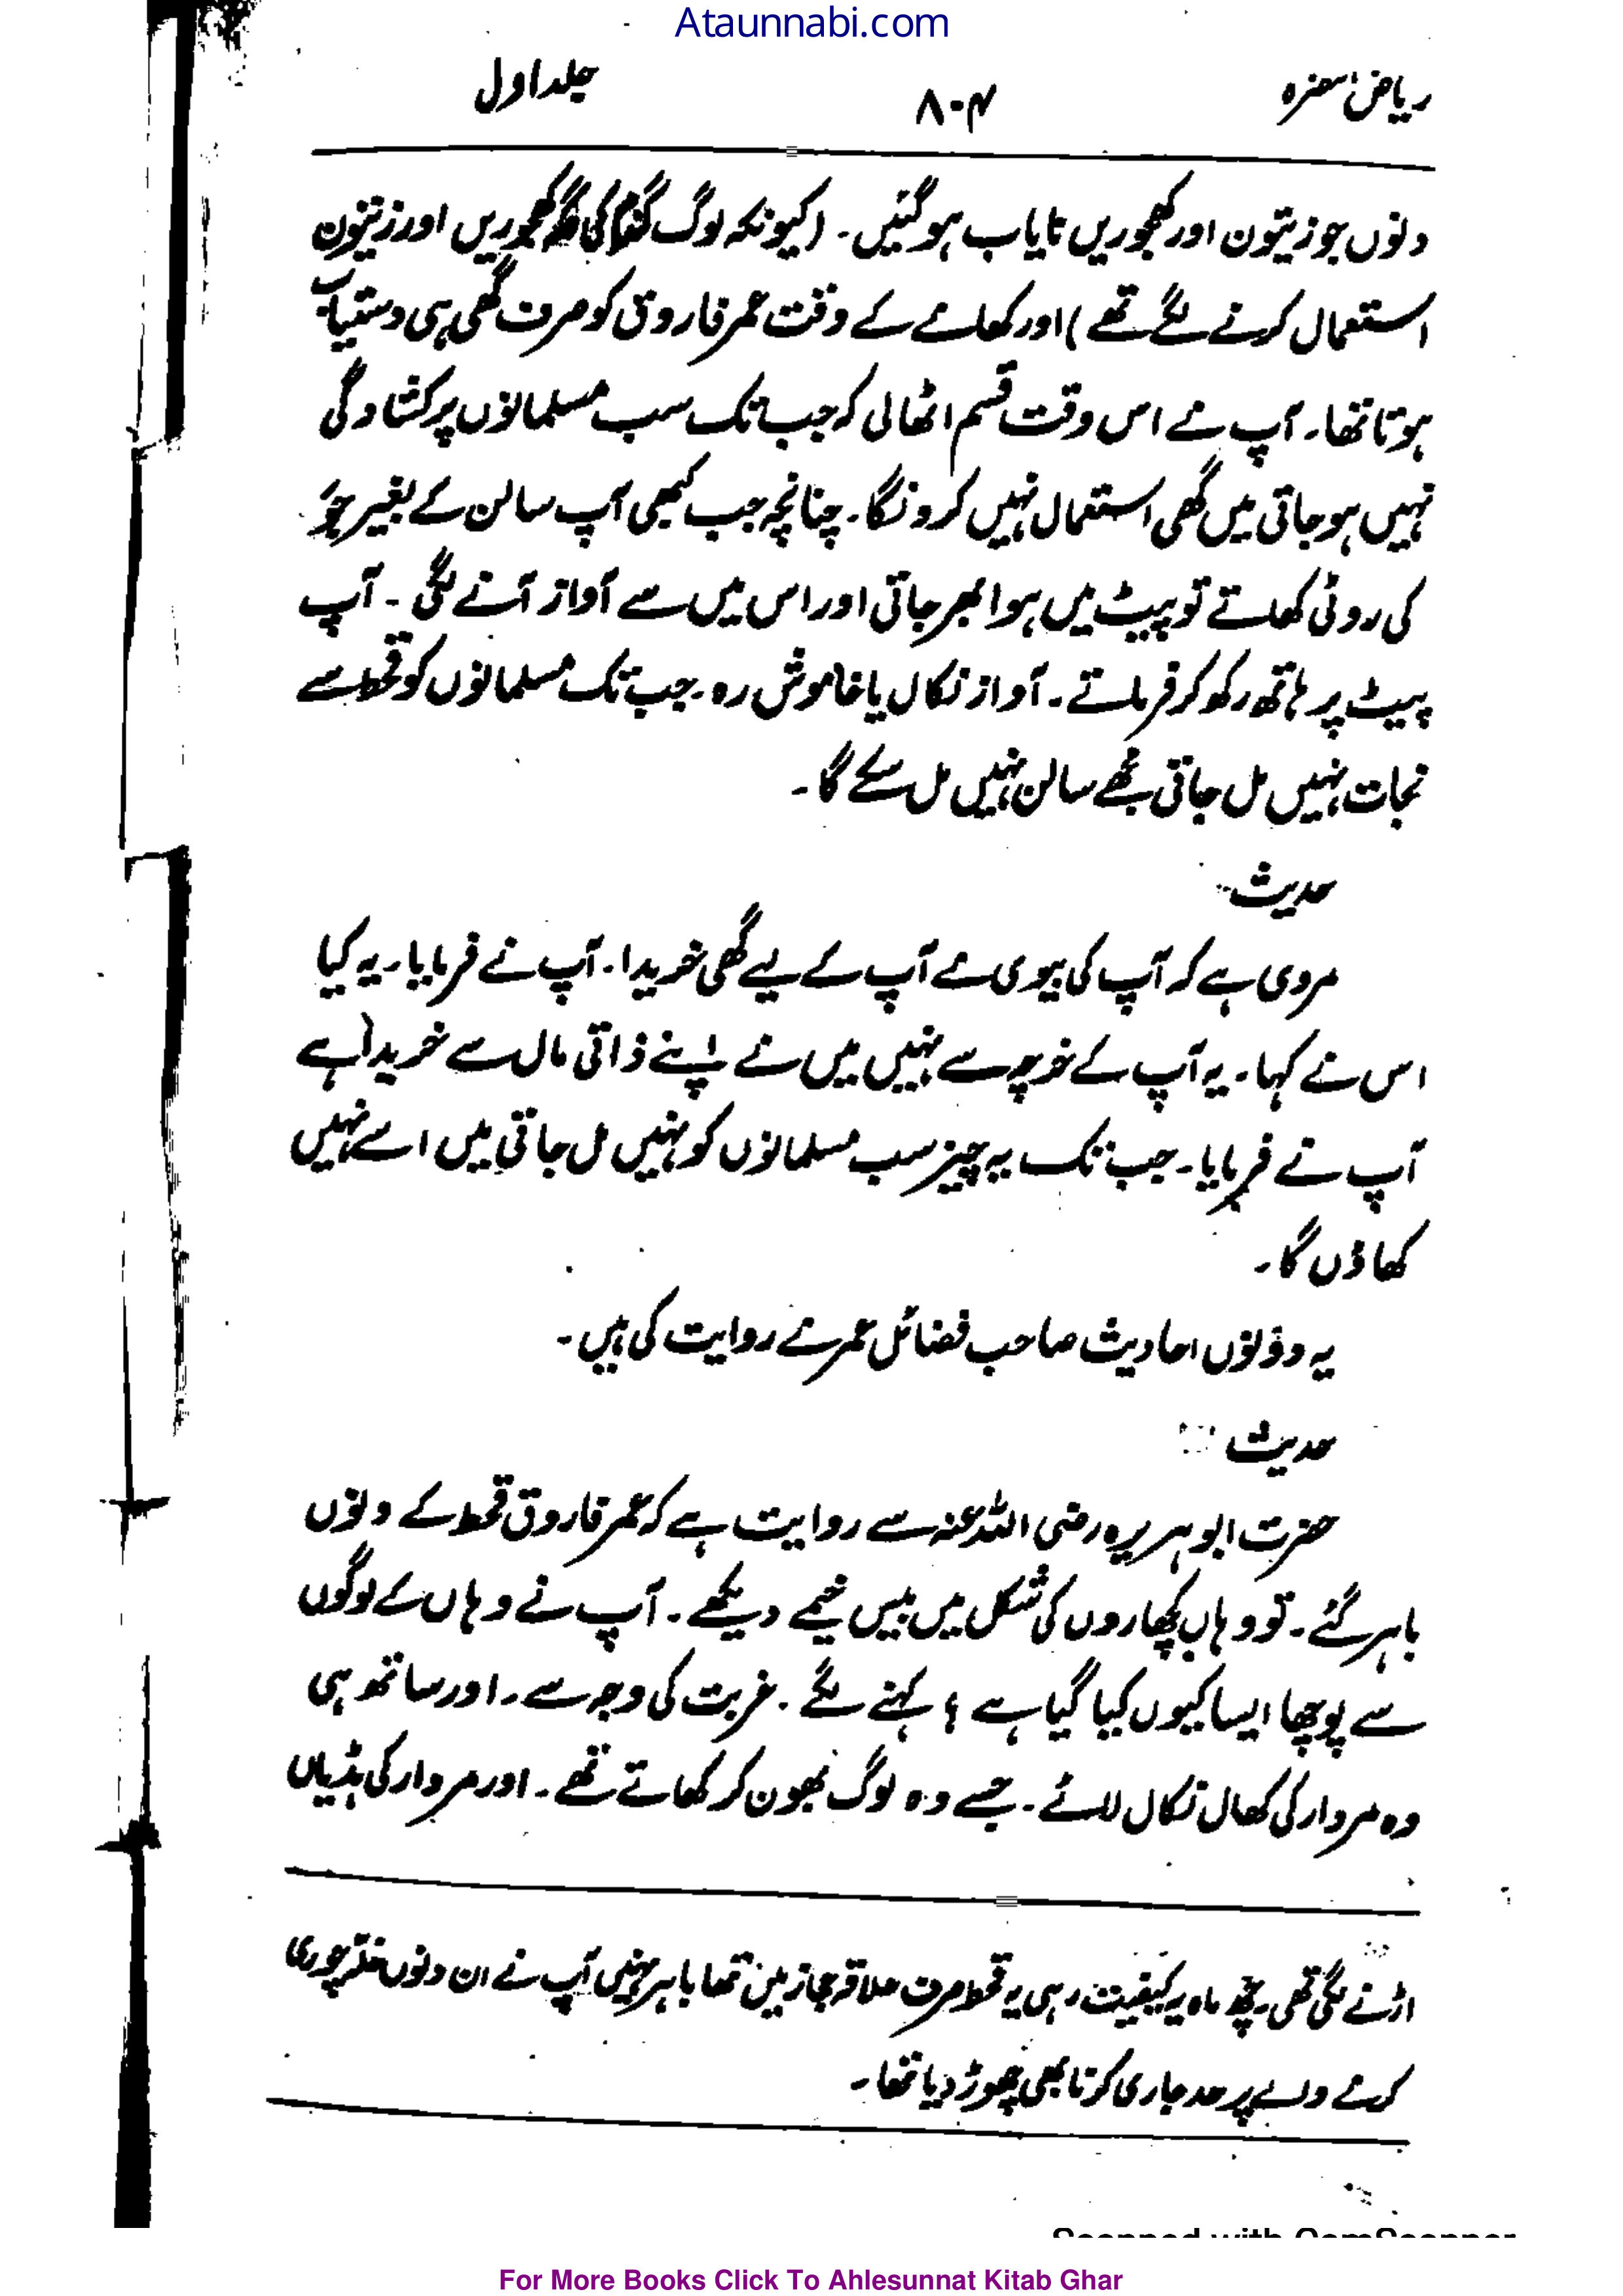 Ataunnabi.com
ریاض النضرہ ۸۰۴ جلد اول
دنوں جو زیتون اور کھجوریں نایاب ہوگئیں۔ (کیونکہ لوگ گندم کی جگہ کھجوریں اور زیتون
استعمال کرنے لگے تھے) اور کھانے کے وقت عمر فاروق کو صرف گھی ہی دستیاب
ہوتا تھا۔ آپ نے اس وقت قسم اٹھالی کہ جب تک سب مسلمانوں پر کشادگی
نہیں ہوجاتی میں گھی استعمال نہیں کرونگا۔ چنانچہ جب کبھی آپ سالن کے بغیر جَو
کی روٹی کھاتے تو پیٹ میں ہوا بھر جاتی اور اس میں سے آواز آنے لگی۔ آپ
پیٹ پر ہاتھ رکھ کر فرماتے۔ آواز نکال یا خاموش رہ۔ جب تک مسلمانوں کو قحط سے
نجات نہیں مل جاتی تجھے سالن نہیں مل سکے گا۔
حدیث
مروی ہے کہ آپ کی بیوی نے آپ کے لیے گھی خریدا۔ آپ نے فرمایا۔ یہ کیا
اس نے کہا۔ یہ آپ کے خرچہ سے نہیں میں نے اپنے ذاتی مال سے خریدا ہے
آپ نے فرمایا۔ جب تک یہ چیز سب مسلمانوں کو نہیں مل جاتی میں اسے نہیں
کھاؤں گا۔
یہ دونوں احادیث صاحب فضائل عمر نے روایت کی ہیں۔
حدیث
حضرت ابوہریرہ رضی اللہ عنہ سے روایت ہے کہ عمر فاروق قحط کے دنوں
باہر گئے۔ تو وہاں کچھاروں کی شکل میں بیس خیمے دیکھے۔ آپ نے وہاں کے لوگوں
سے پوچھا ایسا کیوں کیا گیا ہے؟ کہنے لگے۔ غربت کی وجہ سے۔ اور ساتھ ہی
وہ مردار کی کھال نکال لائے۔ جسے وہ لوگ بھون کر کھاتے تھے۔ اور مردار کی ہڈیاں
اڑنے لگی تھی۔ چھ ماہ یہ کیفیت رہی یہ قحط صرف علاقہ حجاز میں تھا باہر نہیں آپ نے ان دنوں غلہ چوری
کرنے والے پر حد جاری کرنا بھی چھوڑ دیا تھا۔
Scanned with CamScanner
For More Books Click To Ahlesunnat Kitab Ghar